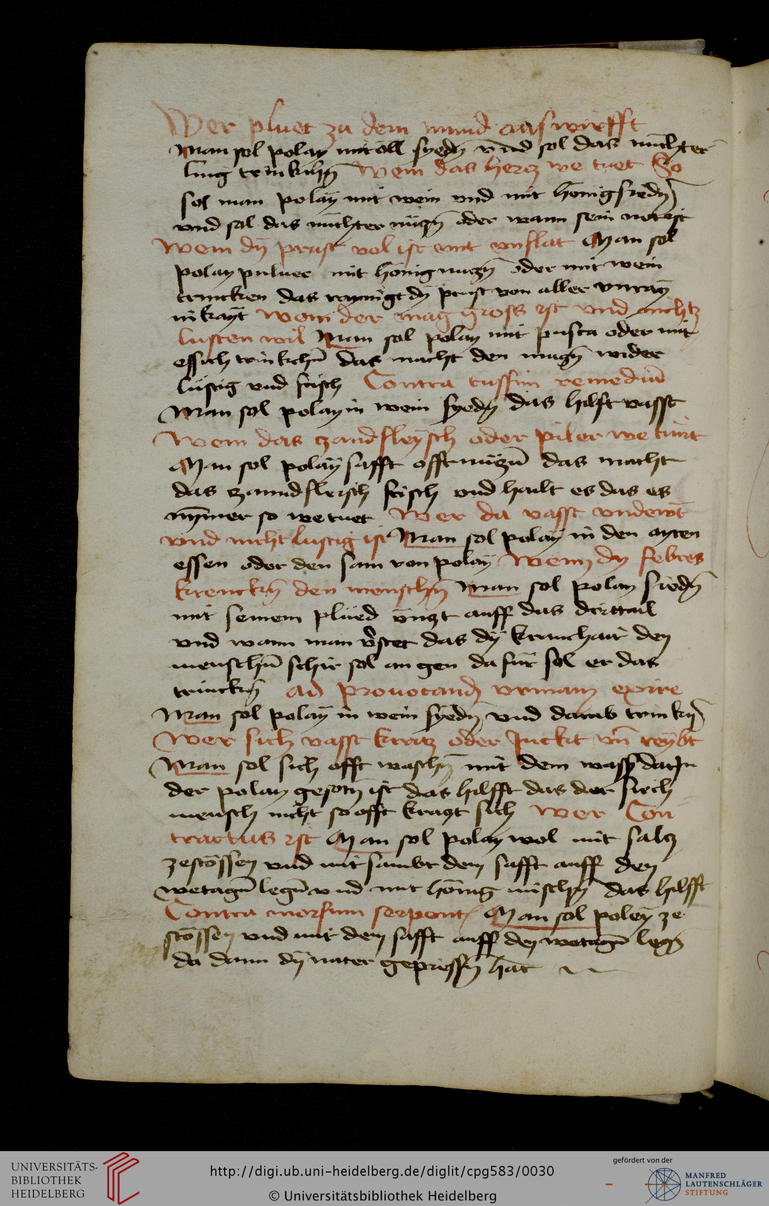 Wer pluet zu dem mund auswirfft
Man sol polay mit oll syedn vnd sol das nuchter
ling trinkchn Wem das hercz we tuet So
sol man polay mit wein vnd mit honig siedn
vnd sol das nuchter nuczn oder wann sein not ist
Wem dy prust vol ist mit vnflat Man sol
polay puluer mit honig nuczn oder mit wein
trincken das raynigt dy prust von aller vnray
nikayt Wem der mag gross ist vnd nichtz
lusten wil Man sol polay mit pusca oder mit
essich trinkchn das macht den magn wider
lustig vnd frisch Contra tussim remediu
Man sol polay in wein syedn das hilft vasst
Wem das zandfleysch oder piler we tuut
Man sol polay safft offt nuczn das macht
das zanndfleisch frisch vnd hailt es das es
nymer so we tuet Wer da vasst vndewt
vnd nicht lustig ist Man sol polay in den ayren
essen oder den sam von polay Wem dy febres
krenckn den menschn Man sol polay siedn
mit seinem plued
vnd wann man das dy kranchait den
menschn schir sol an gen da fur sol er das
trinckn Ad prouocand vrinam
Man sol polay in wein syedn vnd darab trinkn
Wer sich vasst kratz oder Juckt vn reybt
Man sol sich offt waschn mit dem wasser darJn
der polay gesotn ist das hilfft das der siech
mensch nicht so offt kratzt sich Wer Con
tractus ist Man sol polay wol mit salcz
zestossen vnd mit sambt dem safft auff den
wetagn legn vnd mit honig mischn das hilfft
Contra morsum serpent Man sol poley ze
stossen vnd mit dem safft auff den wetagn legn
da dann dy nater gepissn hat
UNIVERSITÄTS-
BIBLIOTHEK
HEIDELBERG
http://digi.ub.uni-heidelberg.de/diglit/cpg583/0030
© Universitätsbibliothek Heidelberg
gefördert von der
MANFRED
LAUTENSCHLÄGER
STIFTUNG